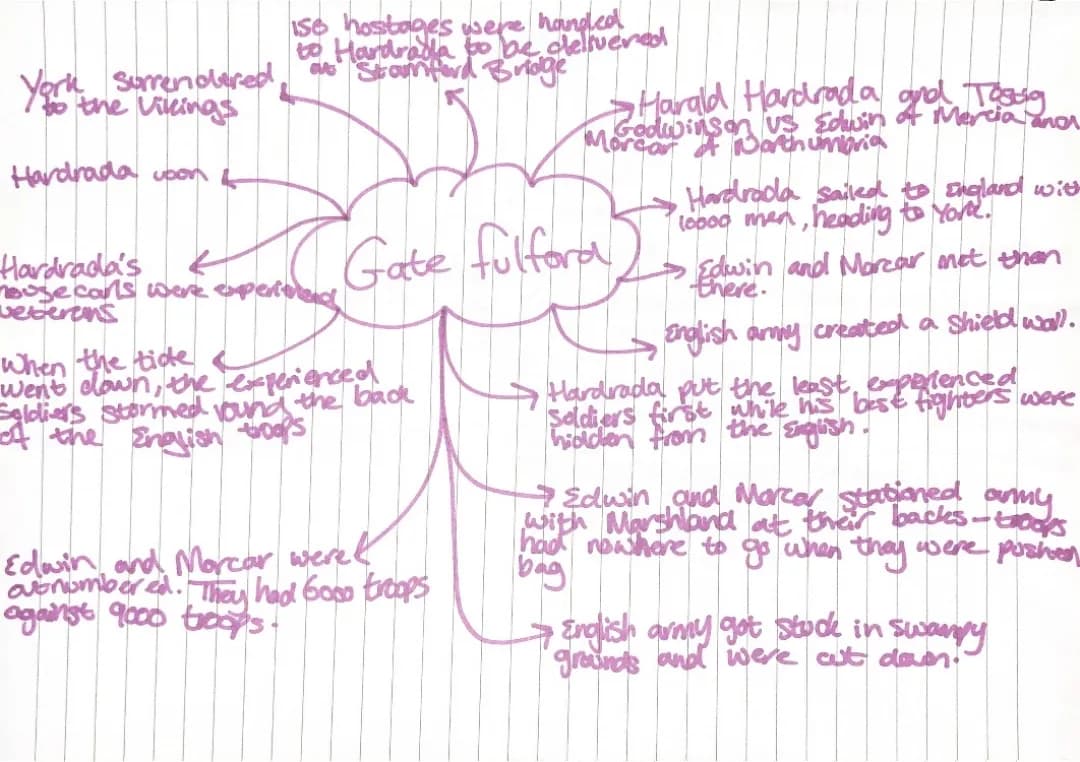 150 hostages were handed
to Hardrada to be delivered
at Stamford Bridge
York surrendered
to the Vikings
Hardrada won
Hardrada's
housecarls were experienced
veterans
When the tide
went down, the experienced
soldiers stormed round the back
of the English troops
Edwin and Morcar were
outnumbered. They had 6000 troops
against 9000 troops.
Gate fulford
Harald Hardrada and Tostig
Godwinson vs Edwin of Mercia and
Morcar of Northumbria
Hardrada sailed to England with
10000 men, heading to York.
Edwin and Morcar met them
there.
English army created a shield wall.
Hardrada put the least experienced
soldiers first while his best fighters were
hidden from the English.
Edwin and Morcar stationed army
with Marshland at their backs - troops
had nowhere to go when they were pushed
bag
English army got stuck in swampy
grounds and were cut down.